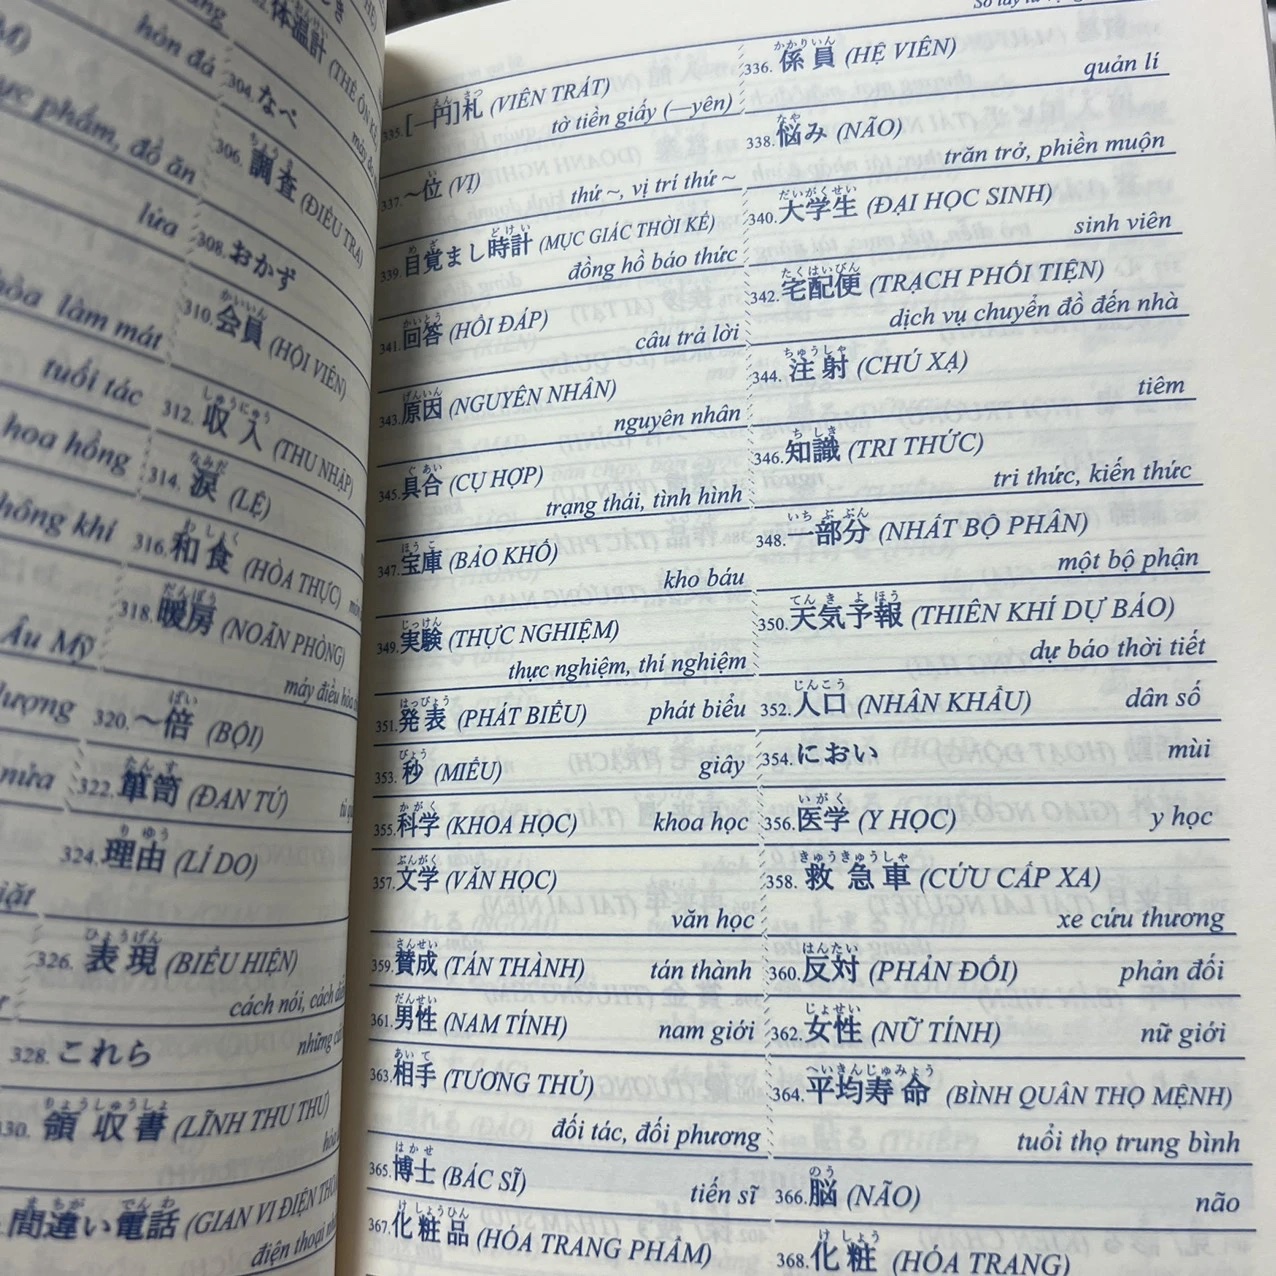 hòn đá
体温計 (THỂ ÔN KẾ)
304. なべ
ực phẩm, đồ ăn
306. 調査 (ĐIỀU TRA)
lửa
308. おかず
làm mát
310. 会員 (HỘI VIÊN)
かいいん
tuổi tác
312. 収入 (THU NHẬP)
しゅうにゅう
hoa hồng
314. 涙 (LỆ)
なみだ
hông khí
316. 和食 (HÒA THỰC)
わしょく
318. 暖房 (NOÃN PHÒNG)
だんぼう
Âu Mỹ
máy điều hòa
lượng
320. ～倍 (BỘI)
ばい
nửa
322. 箪笥 (ĐAN TỨ)
たんす
324. 理由 (LÍ DO)
りゆう
326. 表現 (BIỂU HIỆN)
ひょうげん
cách nói, cách
328. これら
những
330. 領収書 (LĨNH THU THƯ)
りょうしゅうしょ
間違い電話 (GIAN VI ĐIỆN THOẠI)
まちがいでんわ
điện thoại
Sổ tay từ vựng
335. [―円]札 (VIÊN TRÁT)
えん さつ
tờ tiền giấy (―yên)
336. 係員 (HỆ VIÊN)
かかりいん
quản lí
337. ～位 (VỊ)
い
thứ ~, vị trí thứ ~
338. 悩み (NÃO)
なや
trăn trở, phiền muộn
339. 目覚まし時計 (MỤC GIÁC THỜI KẾ)
めざ とけい
đồng hồ báo thức
340. 大学生 (ĐẠI HỌC SINH)
だいがくせい
sinh viên
341. 回答 (HỒI ĐÁP)
かいとう
câu trả lời
342. 宅配便 (TRẠCH PHỐI TIỆN)
たくはいびん
dịch vụ chuyển đồ đến nhà
343. 原因 (NGUYÊN NHÂN)
げんいん
nguyên nhân
344. 注射 (CHÚ XẠ)
ちゅうしゃ
tiêm
345. 具合 (CỤ HỢP)
ぐあい
trạng thái, tình hình
346. 知識 (TRI THỨC)
ちしき
tri thức, kiến thức
347. 宝庫 (BẢO KHỐ)
ほうこ
kho báu
348. 一部分 (NHẤT BỘ PHẬN)
いちぶぶん
một bộ phận
349. 実験 (THỰC NGHIỆM)
じっけん
thực nghiệm, thí nghiệm
350. 天気予報 (THIÊN KHÍ DỰ BÁO)
てんきよほう
dự báo thời tiết
351. 発表 (PHÁT BIỂU) phát biểu
はっぴょう
352. 人口 (NHÂN KHẨU) dân số
じんこう
353. 秒 (MIỂU) giây
びょう
354. におい mùi
355. 科学 (KHOA HỌC) khoa học
かがく
356. 医学 (Y HỌC) y học
いがく
357. 文学 (VĂN HỌC)
ぶんがく
văn học
358. 救急車 (CỨU CẤP XA)
きゅうきゅうしゃ
xe cứu thương
359. 賛成 (TÁN THÀNH) tán thành
さんせい
360. 反対 (PHẢN ĐỐI) phản đối
はんたい
361. 男性 (NAM TÍNH) nam giới
だんせい
362. 女性 (NỮ TÍNH) nữ giới
じょせい
363. 相手 (TƯƠNG THỦ)
あいて
đối tác, đối phương
364. 平均寿命 (BÌNH QUÂN THỌ MỆNH)
へいきんじゅみょう
tuổi thọ trung bình
365. 博士 (BÁC SĨ) tiến sĩ
はかせ
366. 脳 (NÃO) não
のう
367. 化粧品 (HÓA TRANG PHẨM)
けしょうひん
368. 化粧 (HÓA TRANG)
けしょう